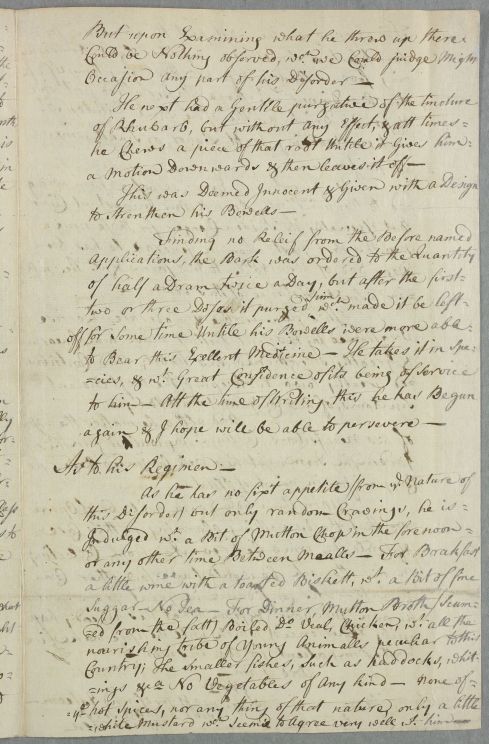 But upon Examining what he threw up there
Could be Nothing observed, wch. we Could judge Might
Occasion any part of his Disorder —
He next had a Gentlle purgative of the tincture
of Rhubarb, but without any Effect, & att times=
he Chews a piece of that root Untile it Gives him=
a Motion Downwards & then leaves it off —
This was Deemed Innocent & Given with a Design
to strenthen his Bowells —
Finding no Releif from the Before named
Applications, the Bark was ordered to the Quantity
of half a Dram twice a Day, but after the first=
two or three Doses it purged him wch. made it be left=
off for Some time Untile his Bowelles were more able=
to Bear this Exellent Medicine — He takes it in Spe=
=cies, & wt. Great Confidence of its being of Service
to him — Att the time of Writing this he has Begun
again & I hope will be able to persevere —
As to his Regimen —
As he has no fixt appetite (from ye. Nature of
this Disorder) but only random Cravings, he is=
Indulged wt. a Bit of Mutton Chop in the forenoon=
or any other time Between Mealls — For Breakfast
a little wine with a toasted Biskett, wt. a Bit of fine
Suggar — No Tea — For Dinner, Mutton Broth (Scum=
=ed from the fatt) Boiled Do. Veal, Chicken, wt. all the
nourishing tribe of Young Animalls peculiar to this
Country; The smaller fishes, Such as haddocks, whit=
=ings &ca No Vegetables of Any kind — none of=
=ye. hot Spices, nor any thing of that nature, only a little
white Mustard wch. Seems to Agree very well wt. him —